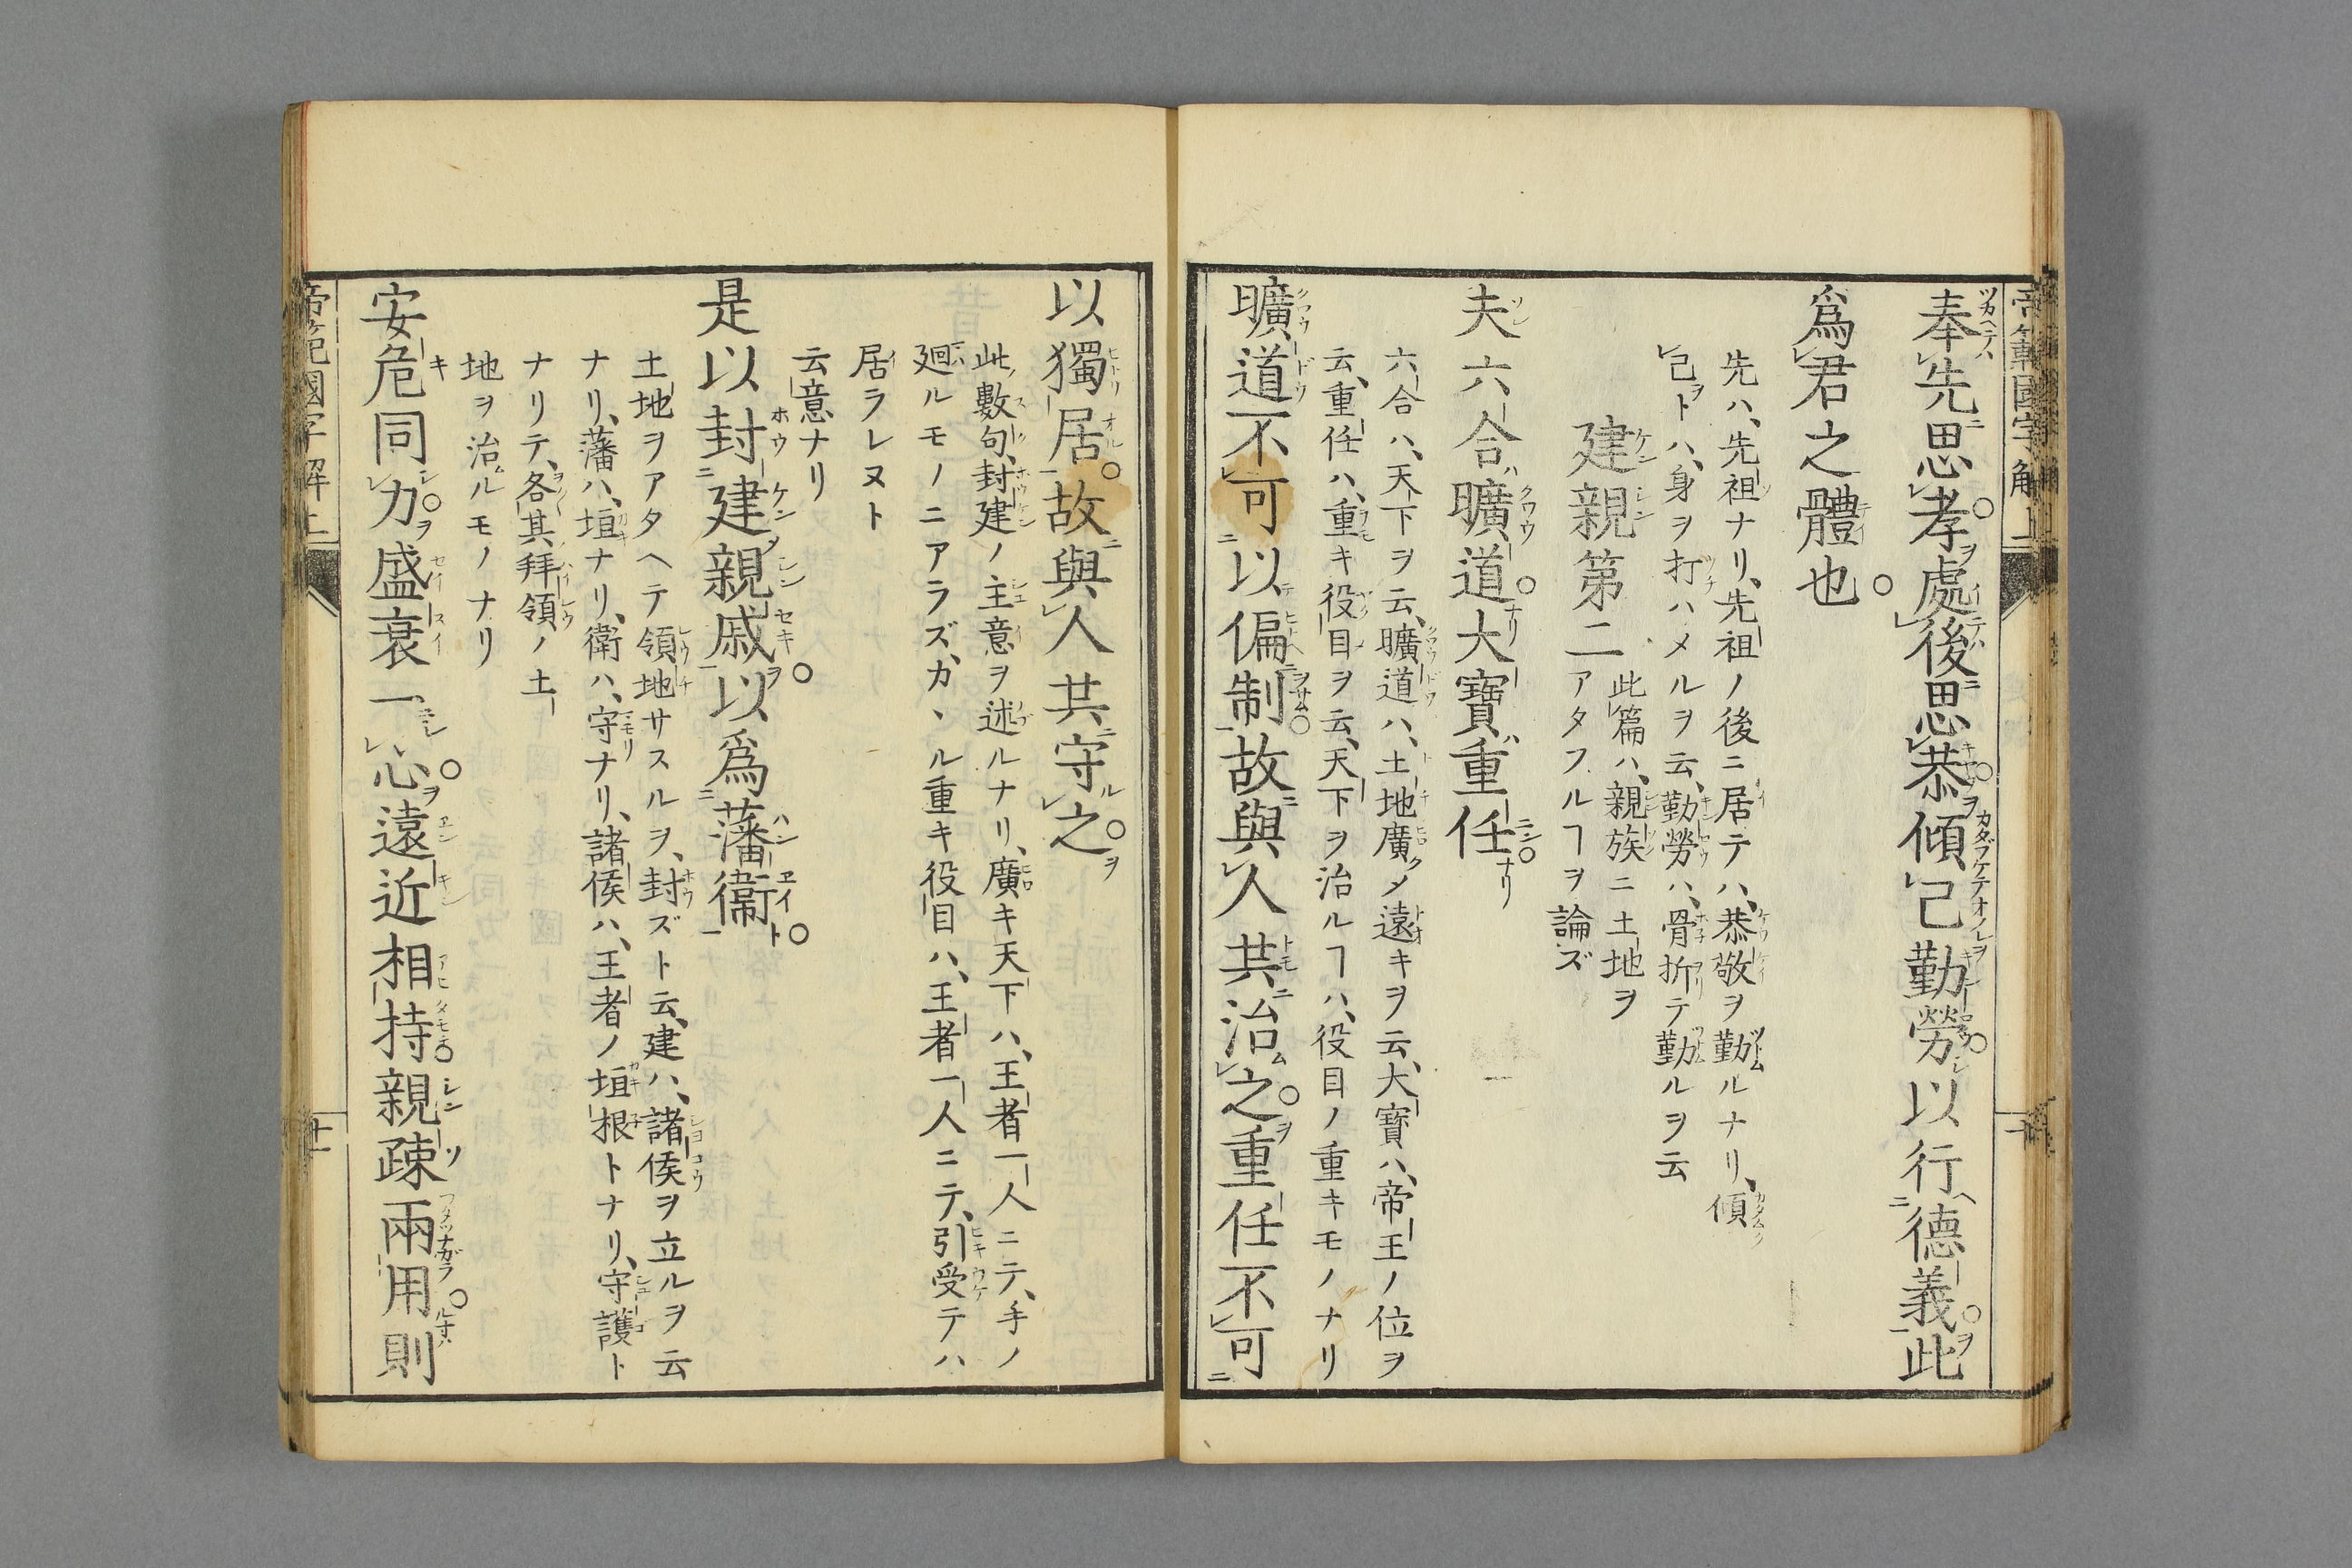 帝範國字解上
奉先思孝處後思恭傾己勤勞以行德義此
爲君之體也
先ハ、先祖ナリ、先祖ノ後ニ居テハ、恭敬ヲ勤ルナリ、傾
己トハ、身ヲ打ハメルヲ云、勤勞ハ、骨折テ勤ルヲ云
建親第二
此篇ハ、親族ニ土地ヲ
アタフルヿヲ論ズ
夫六合曠道大寶重任
六合ハ、天下ヲ云、曠道ハ、土地廣クメ遠キヲ云、大寶ハ、帝王ノ位ヲ
云、重任ハ、重キ役目ヲ云、天下ヲ治ルヿハ、役目ノ重キモノナリ
曠道不可以偏制故與人共治之重任不可
以獨居故與人共守之
此數句、封建ノ主意ヲ述ルナリ、廣キ天下ハ、王者一人ニテ、手ノ
廻ルモノニアラズ、カヽル重キ役目ハ、王者一人ニテ、引受テハ
居ラレヌト
云意ナリ
是以封建親戚以爲藩衞
土地ヲアタヘテ領地サスルヲ、封ズト云、建ハ、諸侯ヲ立ルヲ云
ナリ、藩ハ、垣ナリ、衛ハ、守ナリ、諸侯ハ、王者ノ垣根トナリ、守護ト
ナリテ、各其拜領ノ土
地ヲ治ルモノナリ
安危同力盛衰一心遠近相持親疎兩用則
帝範國字解上
十一